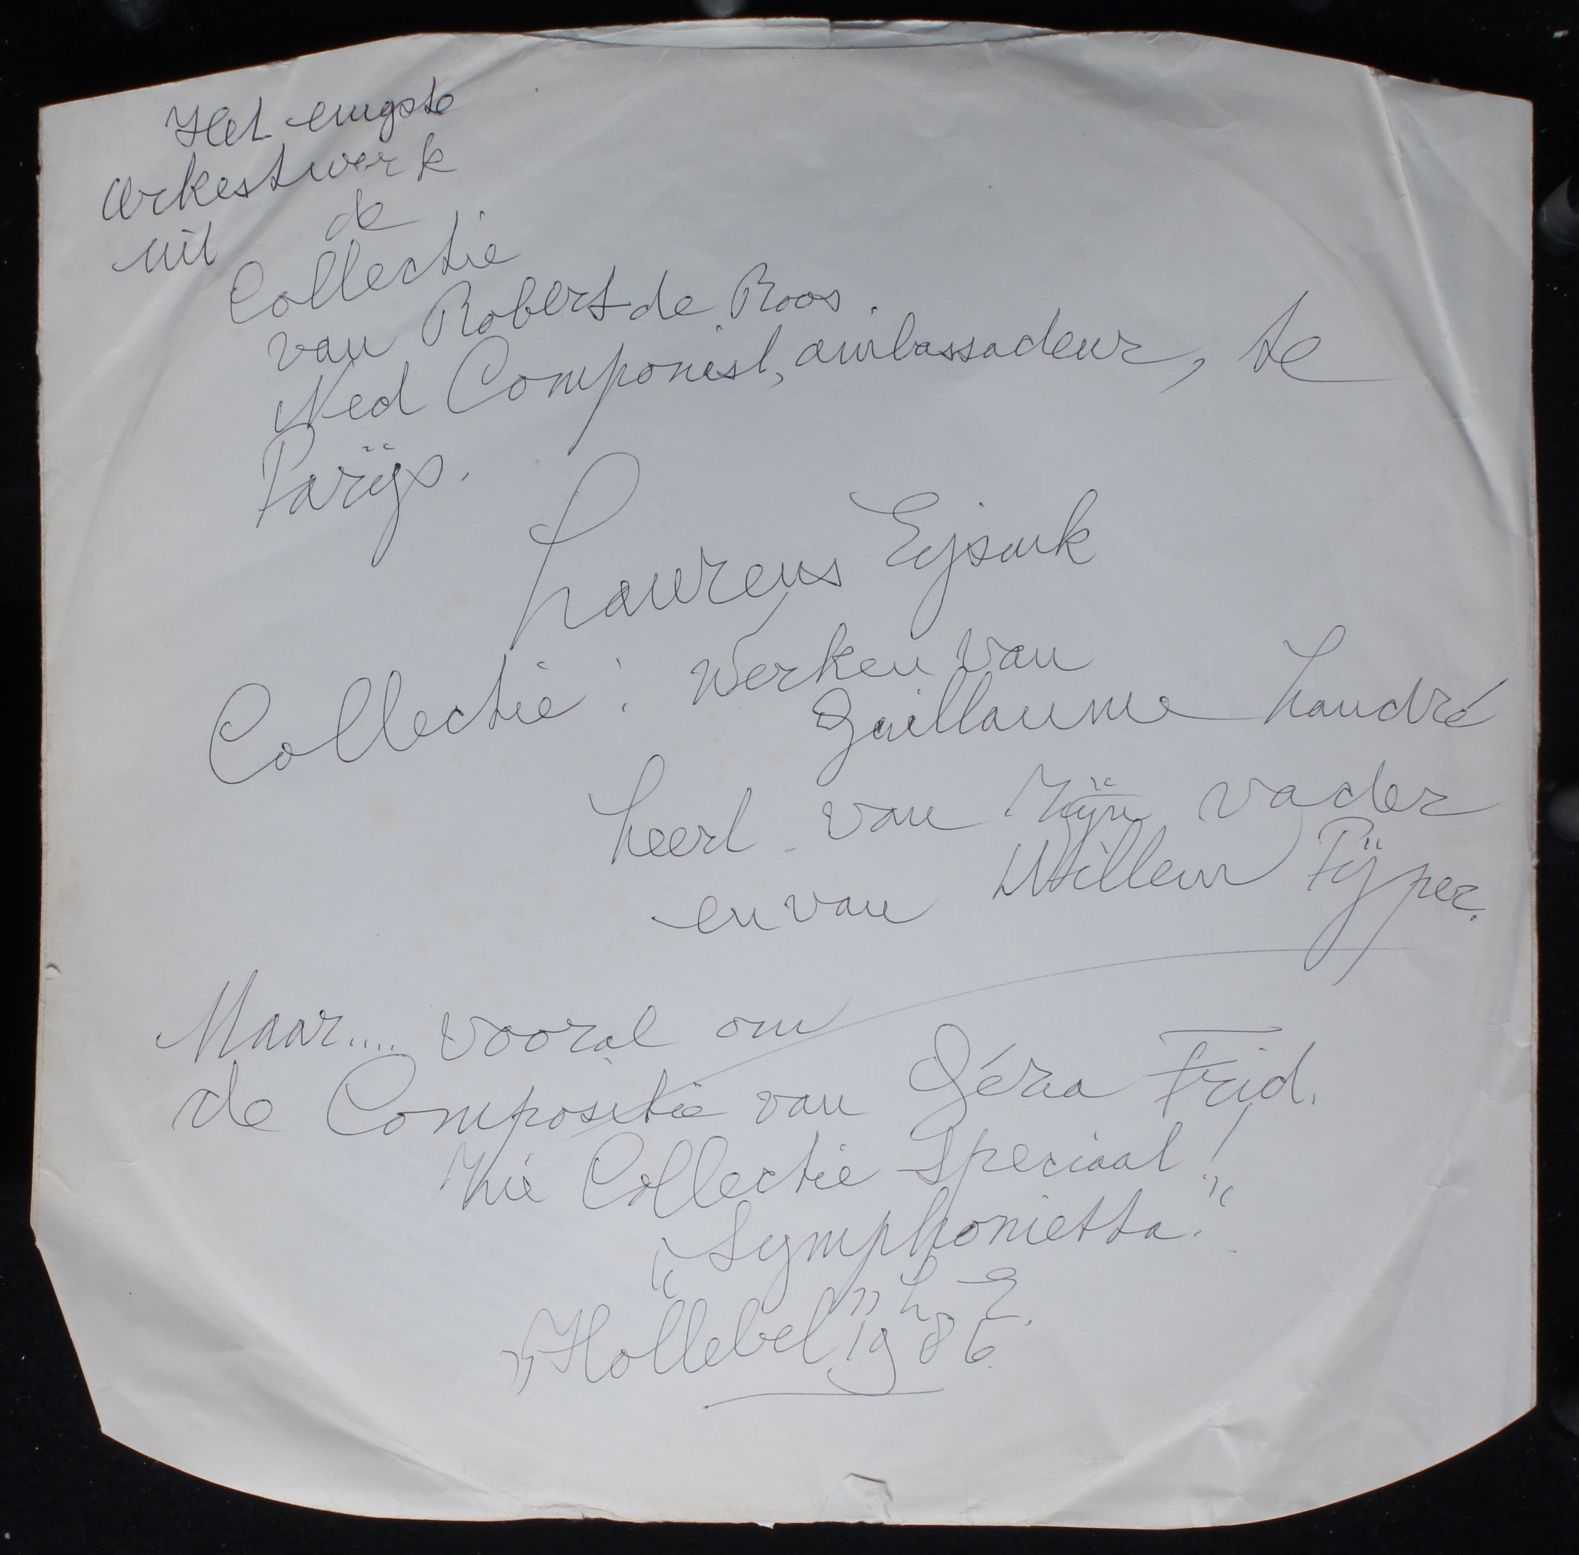 Het enigste
orkestwerk
uit de
Collectie
van Robert de Roos.
Ned Componist, ambassadeur, te
Parijs.
Laurens Eijsink
Collectie: Werken van
Guillaume Landré
Leerl. van Zijn vader
en van Willem Pijper.
Maar.... vooral om
de Compositie van Géza Frid.
Zie Collectie speciaal!
„Symphonietta."
L. E.
„Hollebel" 1986